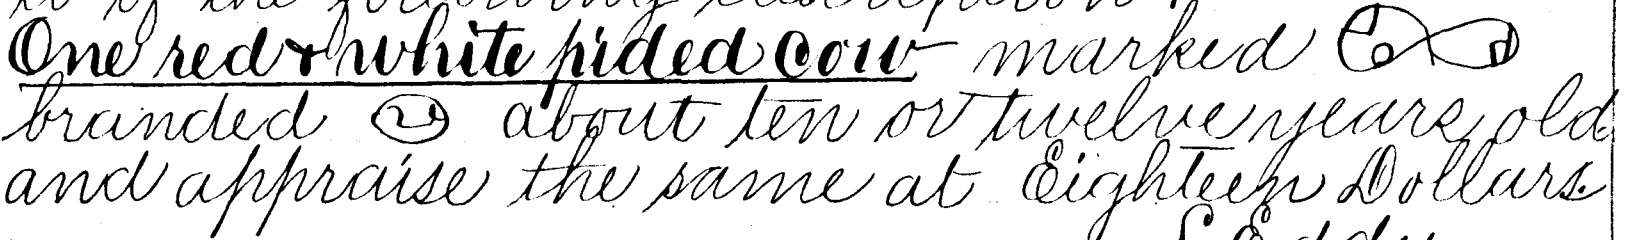 it of the following description
One red & white pided cow marked
branded about ten or twelve years old
and appraise the same at Eighteen Dollars.
Eddy